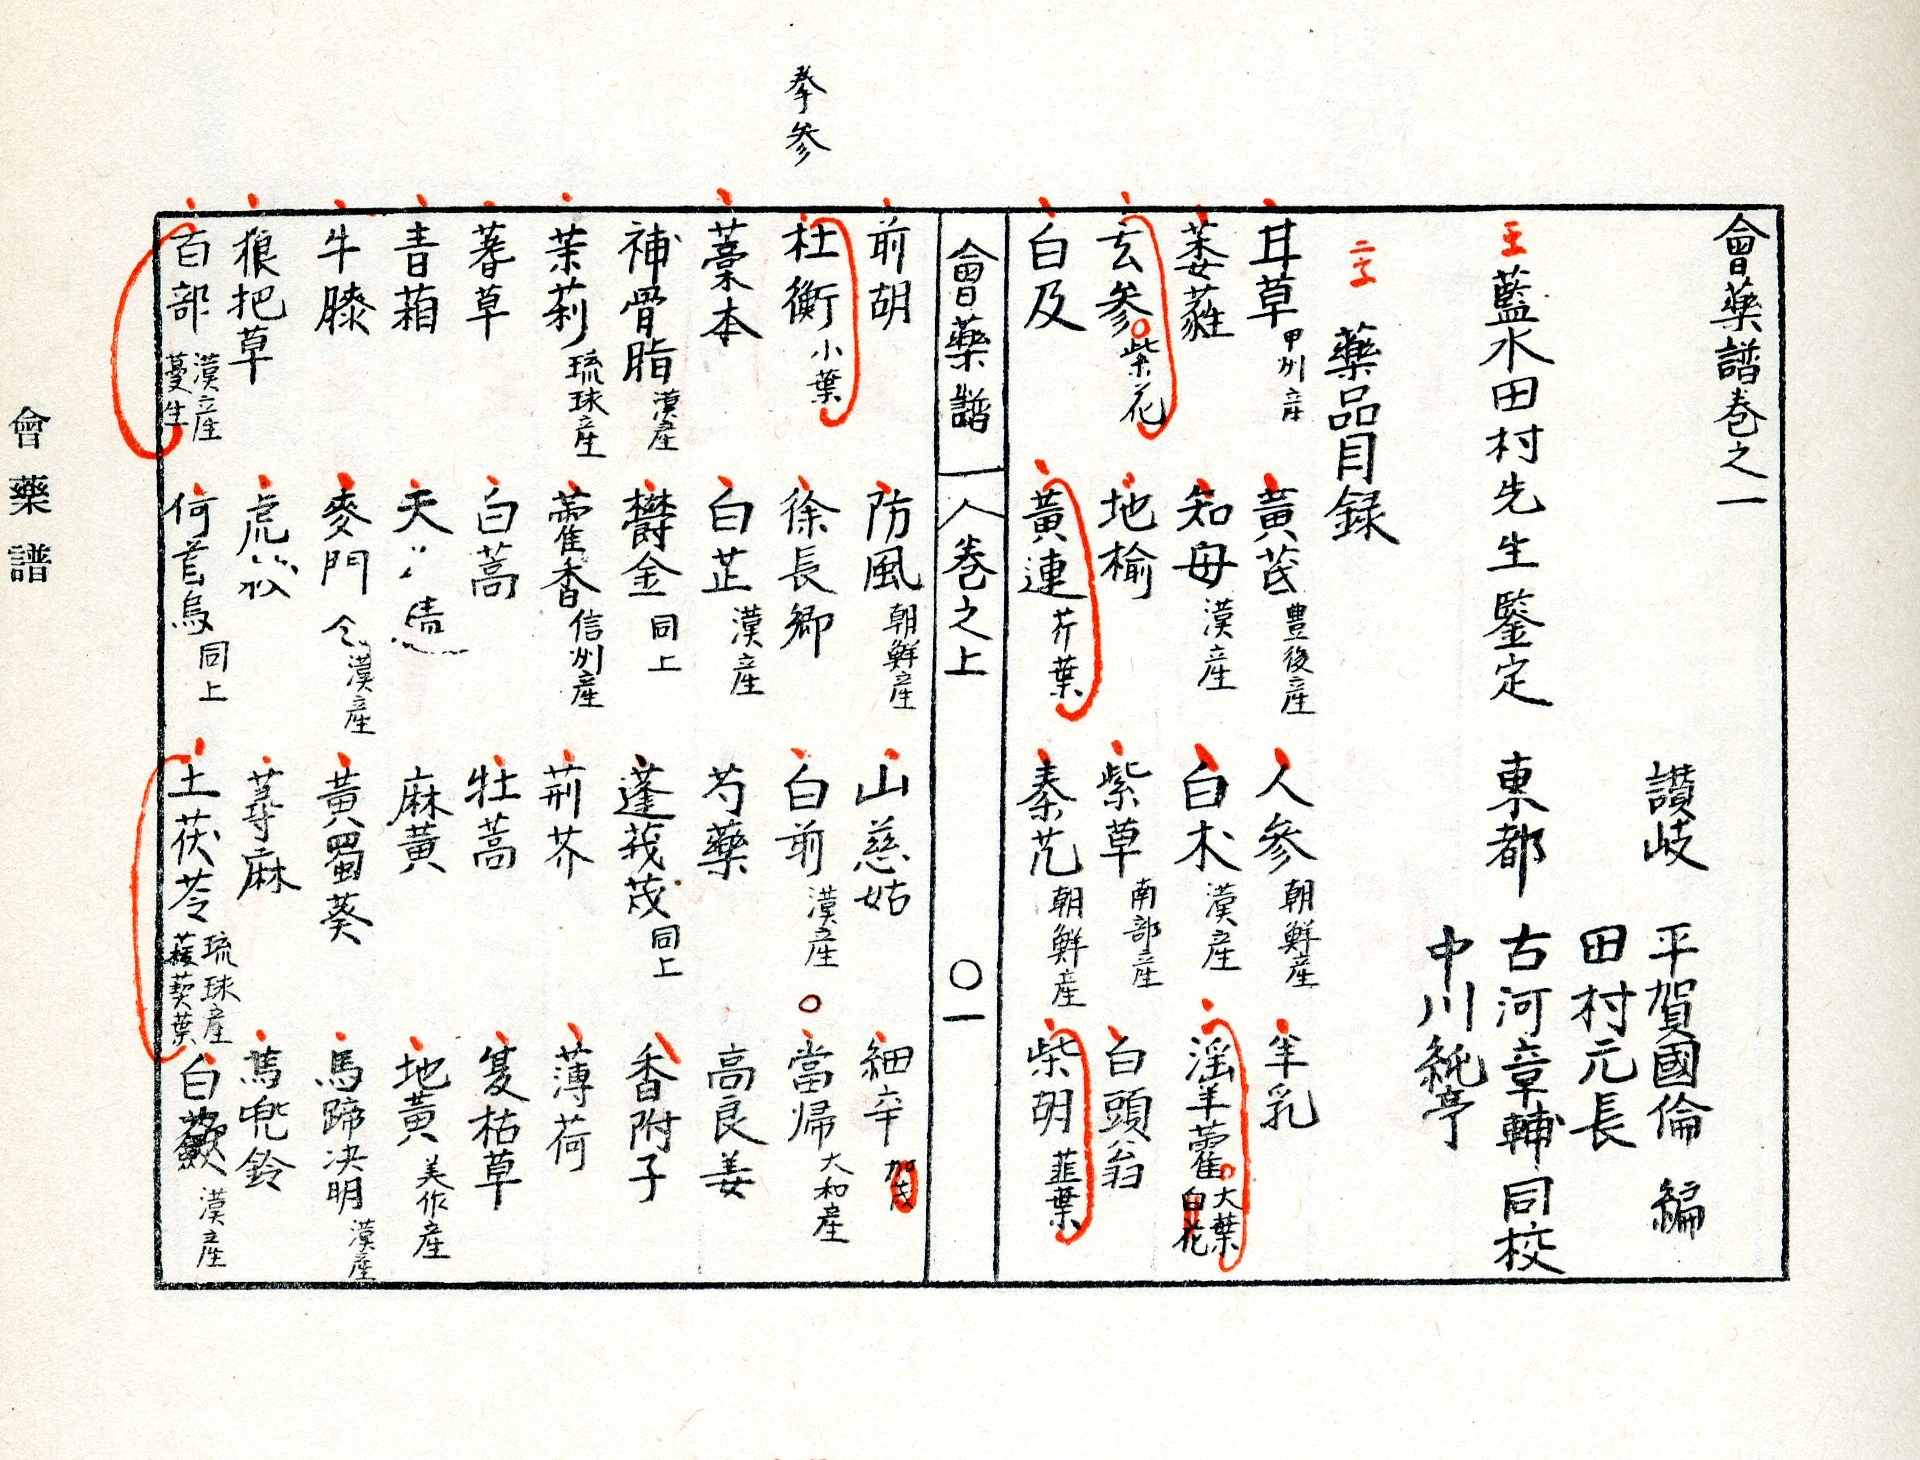 會藥譜卷之一
讃岐 平賀國倫 編
田村元長
藍水田村先生鑒定 東都 古河章輔 同校
中川純亭
二字
藥品目録
甘草 甲州産 黃茋 豊後産 人參 朝鮮産 羊乳
萎蕤 知母 漢産 白朮 漢産 淫羊藿 大葉 白花
玄參 紫花 地榆 紫草 南部産 白頭翁
白及 黃連 芹葉 秦艽 朝鮮産 柴胡 韮葉
會藥譜 人卷之上 〇一
前胡 防風 朝鮮産 山慈姑 細辛 加茂
拳参
杜衡 小葉 徐長卿 白前 漢産 當帰 大和産
藁本 白芷 漢産 芍藥 高良姜
補骨脂 漢産 欝金 同上 蓬莪茂 同上 香附子
茉莉 琉球産 藿香 信州産 荊芥 薄荷
蓍草 白蒿 牡蒿 夏枯草
青葙 天 麻黃 地黃 美作産
牛膝 麥門冬 漢産 黃蜀葵 馬蹄決明 漢産
狼把草 虎 蕁麻 馬兜鈴
百部 漢産 蔓生 何首烏 同上 土茯苓 琉球産 菝葜葉 白蘞 漢産
會藥譜